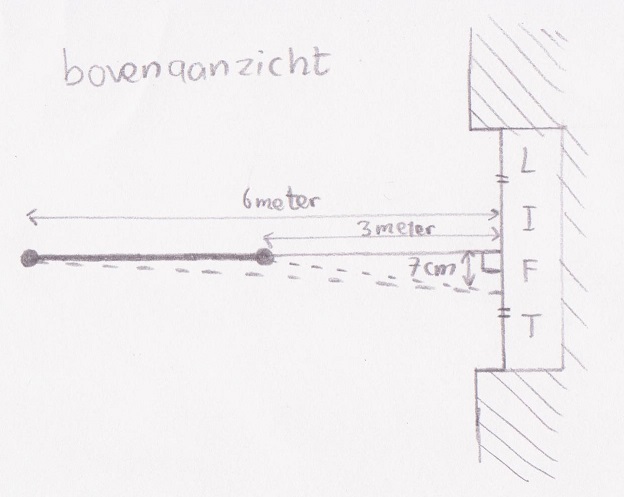 bovenaanzicht
6meter
3meter
7cm
L
I
F
T